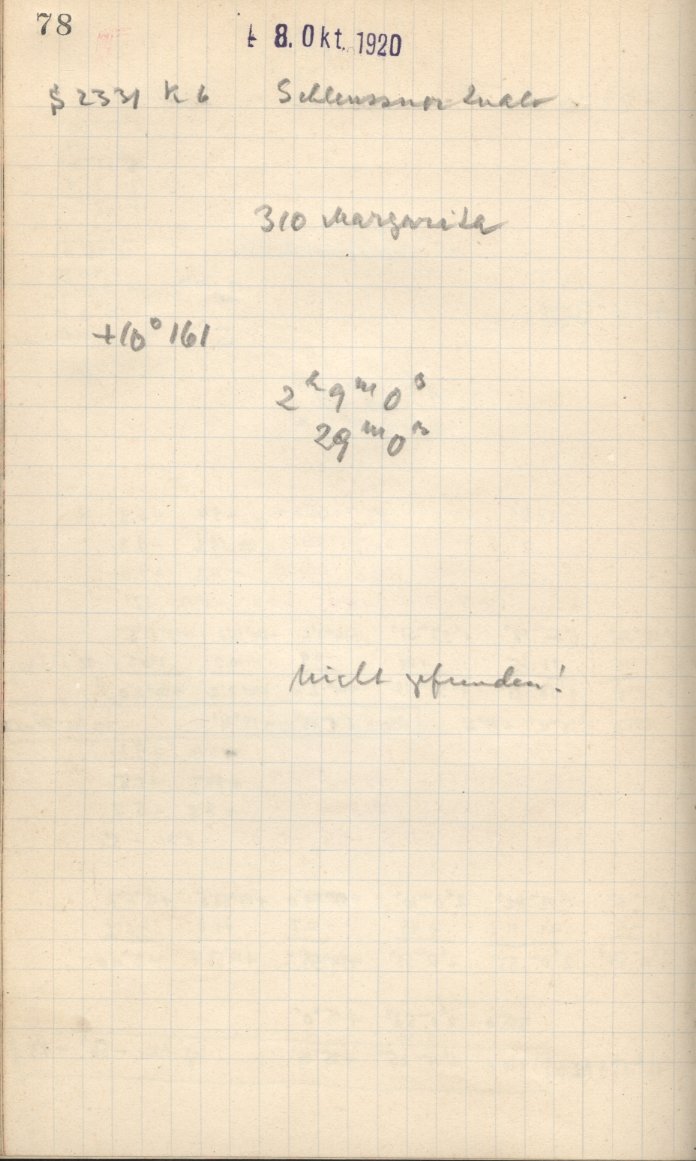 78
8. Okt. 1920
2331 K6 Schleussner
310 Margarita
+10° 161
2ʰ 9ᵐ 0ˢ
29ᵐ 0ˢ
Nicht gefunden!